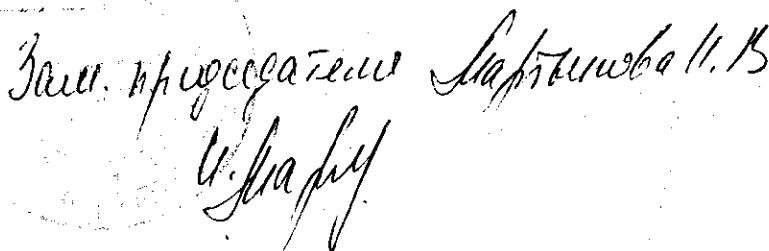 Зам. председателя Мартынова И. В
И. Март